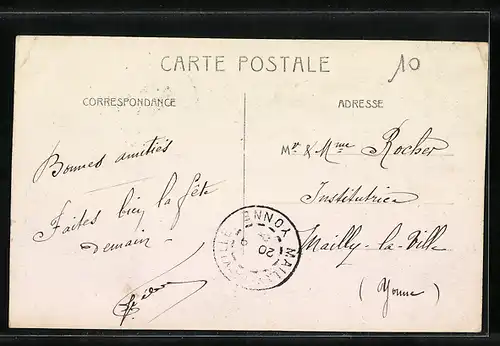 CARTE POSTALE
10
CORRESPONDANCE
ADRESSE
Bonnes amitiés
Faites bien la fête
demain
Mr & Mme Rocher
Institutrice
Mailly-la-Ville
(Yonne)
MAILLY-LA-VILLE
YONNE
20